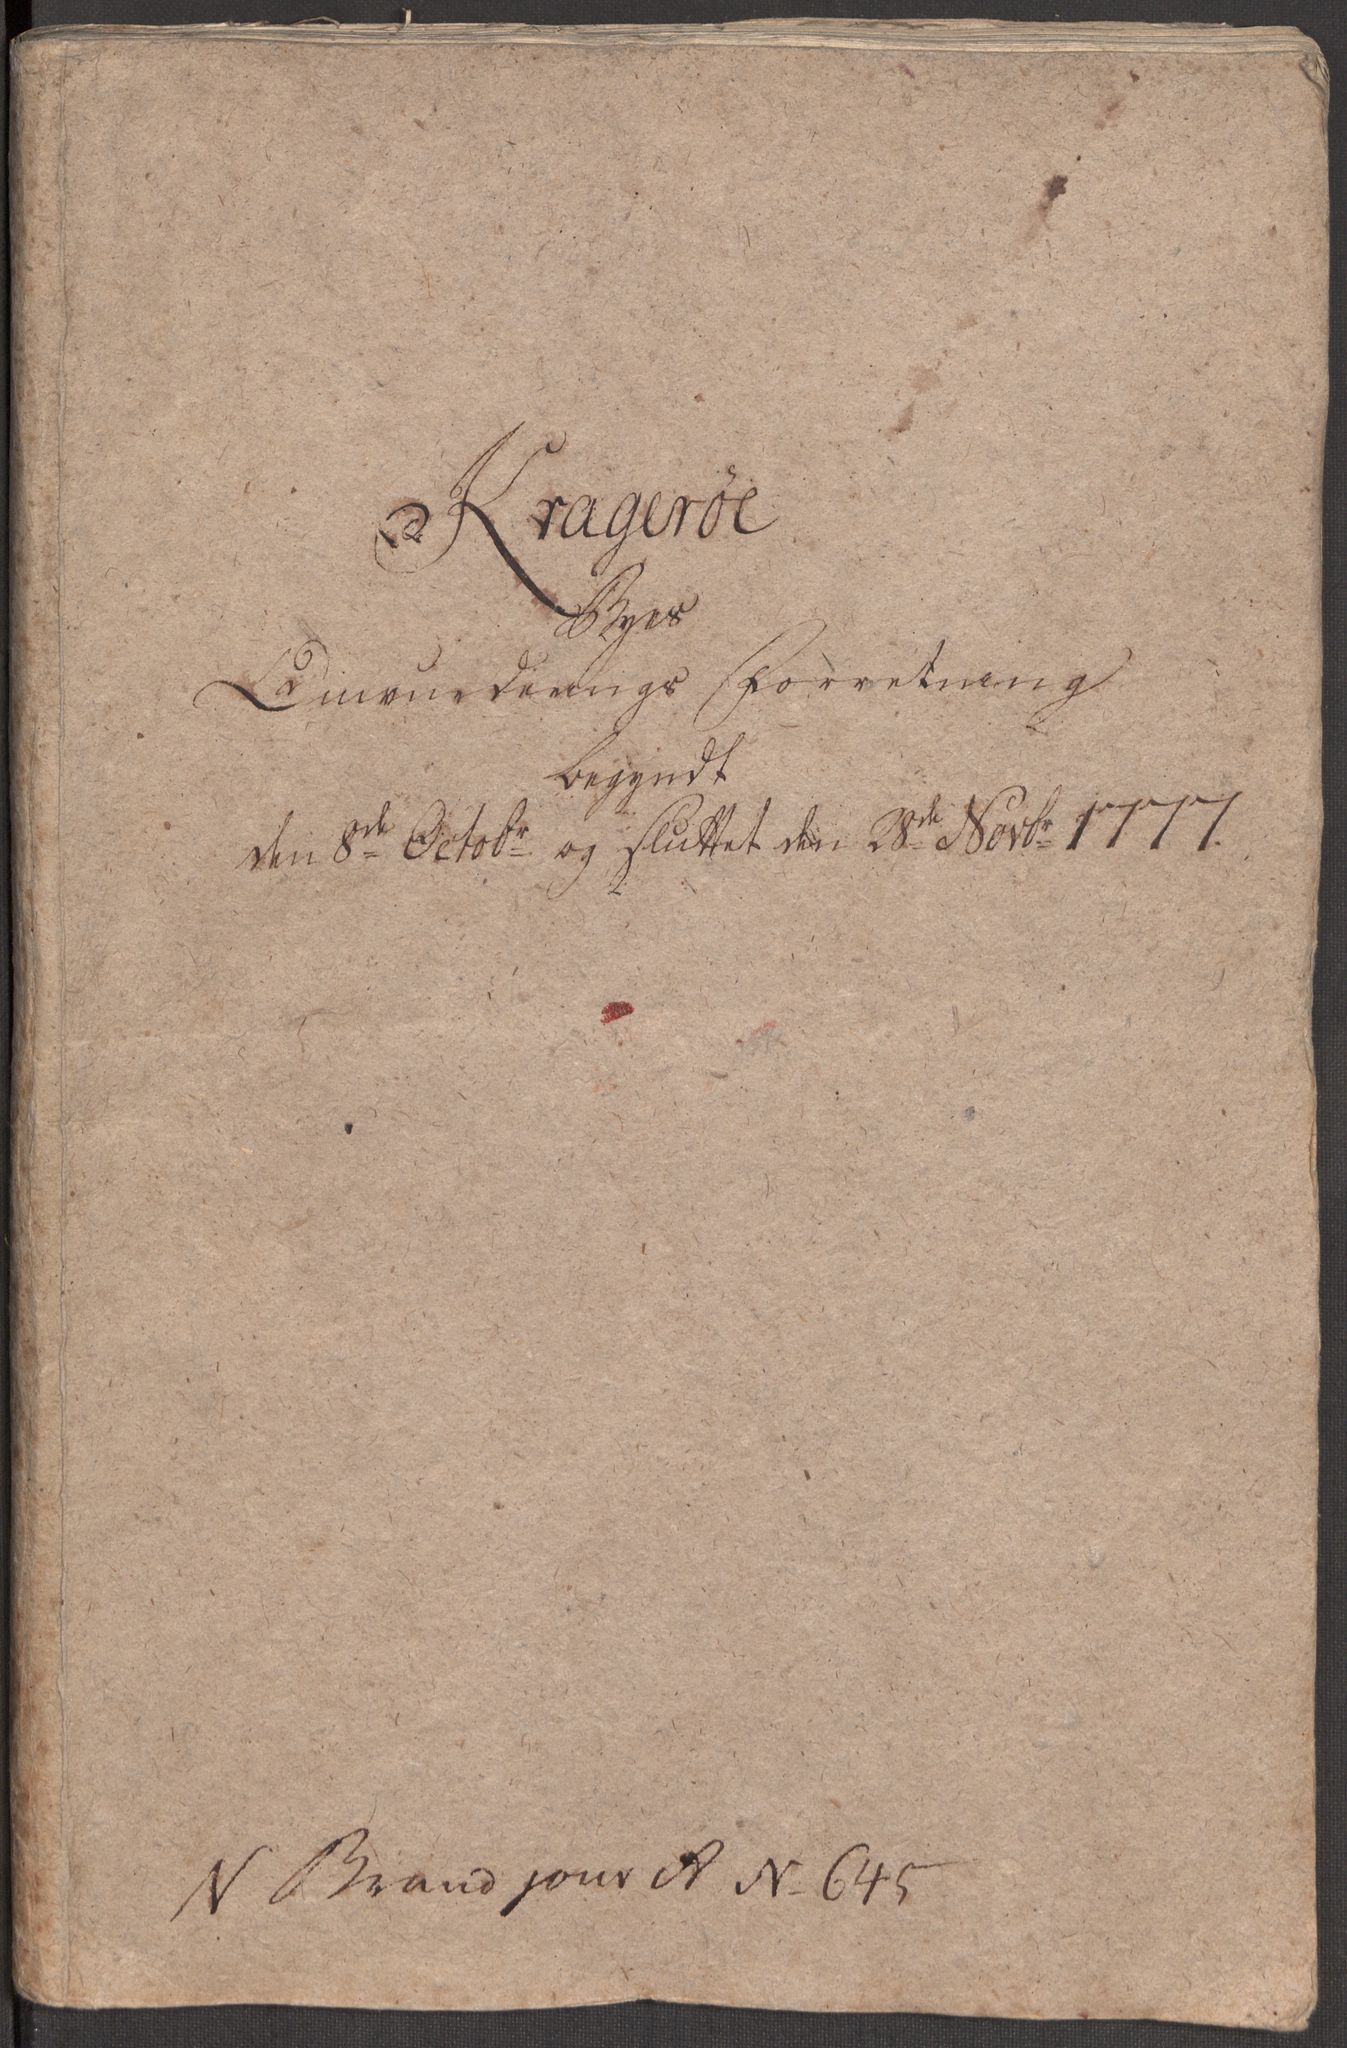 Kragerøe
Byes
Omvurderings Forretning
begyndt
den 8de Octobr og sluttet den 28de Novbr 1777.
N Brand jour A N 645